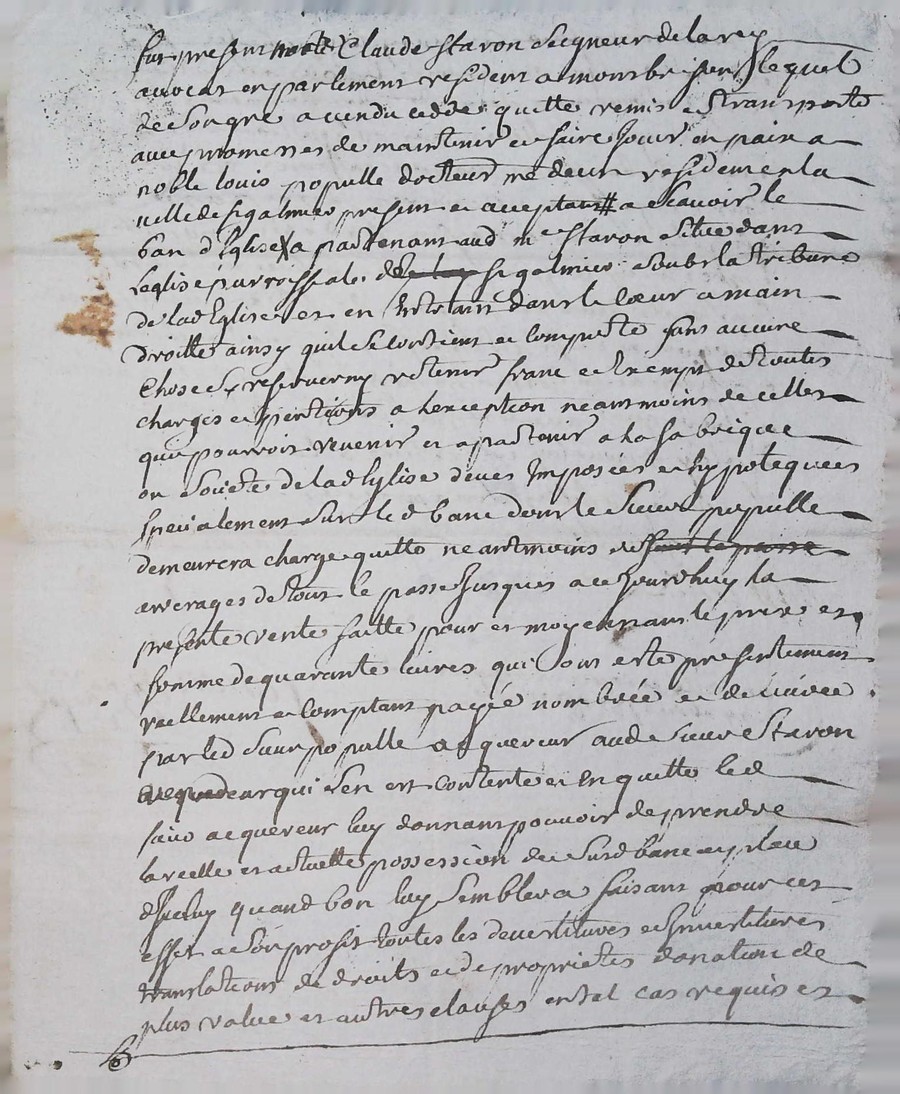 fut present noble Claude Staron Seigneur de larey
avocat en parlement resident a montbrison lequel
de son gre a vendu cedde quitte remis et transporte
avec promesses de maintenir et faire Jouir en paix a
noble louis populle docteur medecin resident en la
ville de st galmier present et acceptant # a scavoir le
ban d'Eglise X apartenant aud me Staron situe dans
Leglise parroissiale de st galmier soubs la tribune
de lad Eglise et en entrant dans le coeur a main
droitte ainsy quil se contient et comporte sans aucune
Chose sy reserver ny retenir franc et Exempt de toutes
charges et pentions a lexception neantmoins de celles
qui pourroit revenir et apartenir a la fabrique
ou Societe de lad Eglise deues Imposées et hypotequées
specialement sur led banc dont le Sieur populle
demeurera charge quitte neantmoins des
arrerages de tout le passe Jusques a ce Jourdhuy la
presente vente faitte pour et moyennant le prix et
somme de quarante livres qui ont este presentement
reellement et comptant payée nombrée et delivree
par led Sieur populle acquereur aud Sieur Staron
qui sen est contente et En quitte led
sieur acquereur luy donnant pouvoir de prendre
la reelle et actuelle possession du susd banc et place
dIceluy quand bon luy semblera faisant pour cet
effet a son profit toutes les devestitures et Investitures
translations de droits et de proprietes donation de
plus value et autres clauses en tal cas requis et